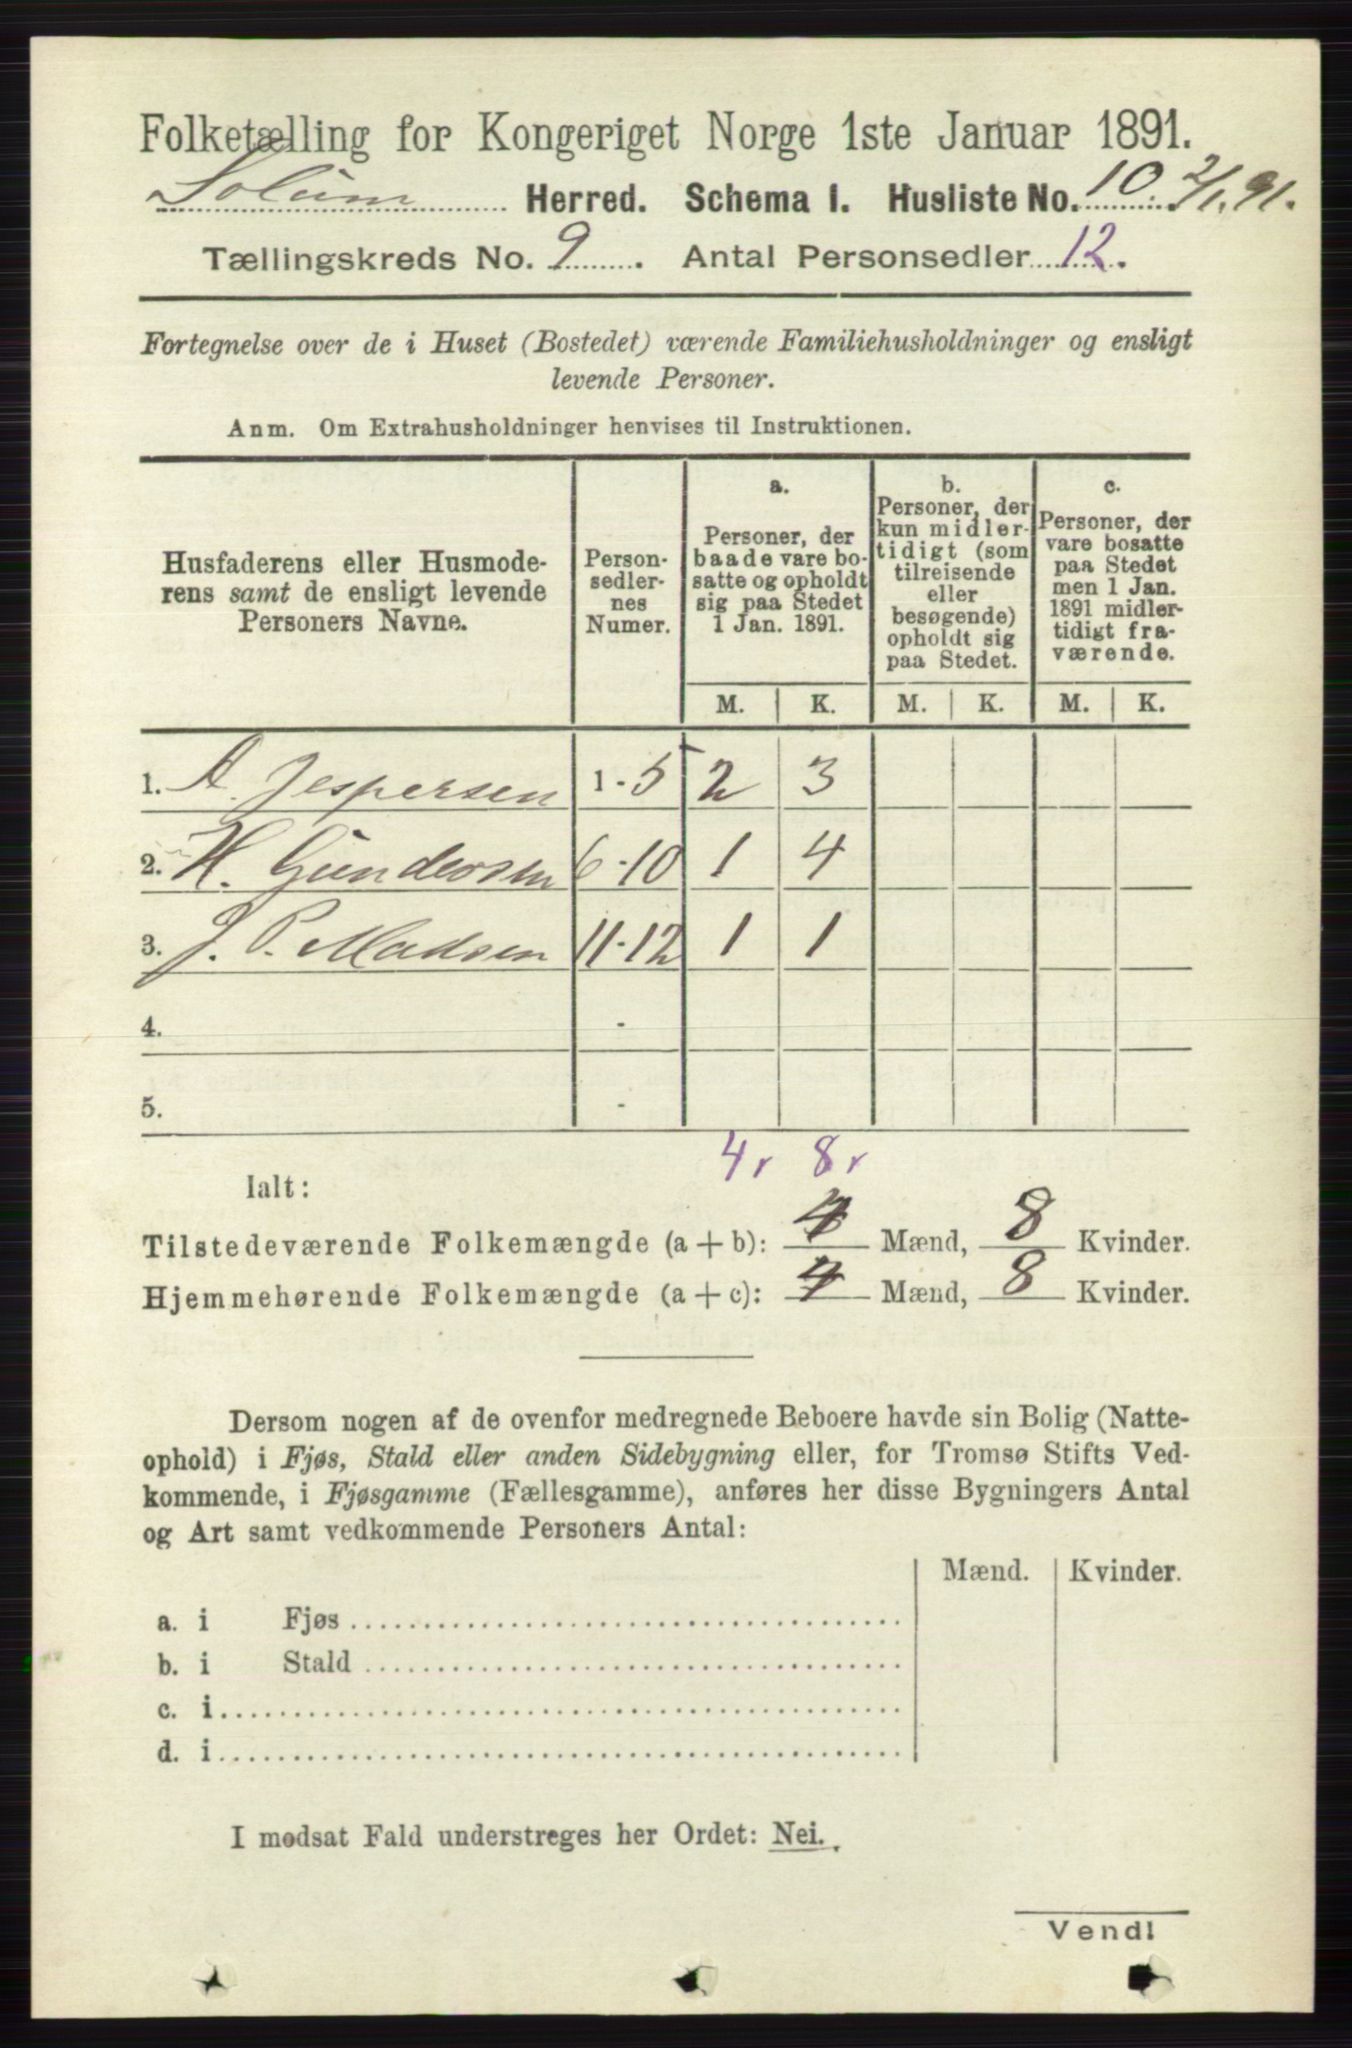 Folketælling for Kongeriget Norge 1ste Januar 1891.
Solum Herred. Schema I. Husliste No. 10. 2/1. 91.
Tællingskreds No. 9. Antal Personsedler 12.
Fortegnelse over de i Huset (Bostedet) værende Familiehusholdninger og ensligt
levende Personer.
Anm. Om Extrahusholdninger henvises til Instruktionen.
Husfaderens eller Husmode-
rens samt de ensligt levende
Personers Navne.
Person-
sedler-
nes
Numer.
a.
Personer, der
baade vare bo-
satte og opholdt
sig paa Stedet
1 Jan. 1891.
b.
Personer, der
kun midler-
tidigt (som
tilreisende
eller
besøgende)
opholdt sig
paa Stedet.
c.
Personer, der
vare bosatte
paa Stedet
men 1 Jan.
1891 midler-
tidigt fra-
værende.
M. K. M. K. M. K.
1. A. Jespersen 1-5 2 3
2. H. Gundersen 6-10 1 4
3. J. P. Madsen 11-12 1 1
4. -
5. -
4 r 8 r
Ialt:
Tilstedeværende Folkemængde (a + b): 4 Mænd, 8 Kvinder.
Hjemmehørende Folkemængde (a + c): 4 Mænd, 8 Kvinder.
Dersom nogen af de ovenfor medregnede Beboere havde sin Bolig (Natte-
ophold) i Fjøs, Stald eller anden Sidebygning eller, for Tromsø Stifts Ved-
kommende, i Fjøsgamme (Fællesgamme), anføres her disse Bygningers Antal
og Art samt vedkommende Personers Antal:
Mænd. Kvinder.
a. i Fjøs
b. i Stald
c. i
d. i
I modsat Fald understreges her Ordet: Nei.
Vend!